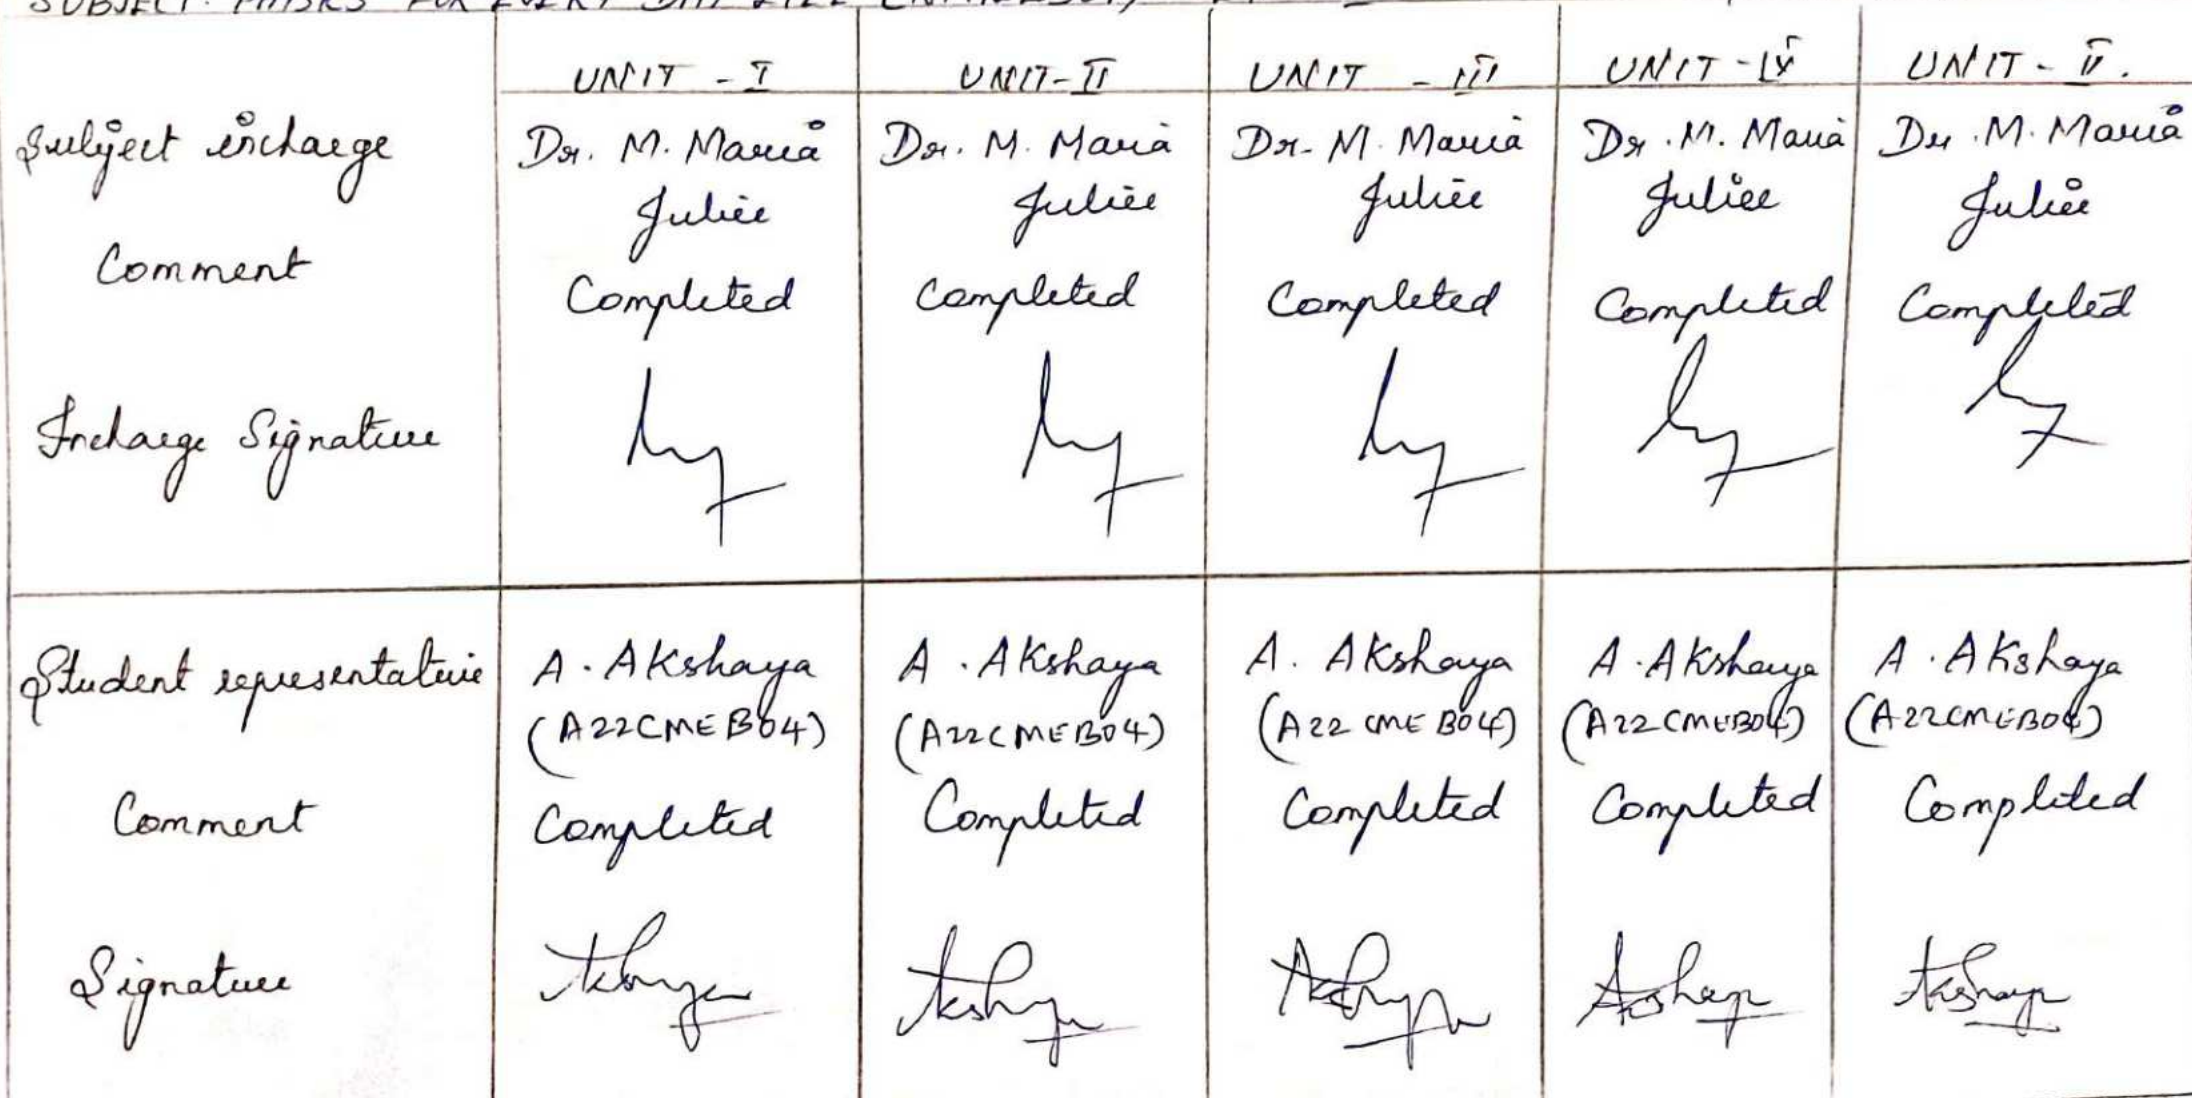 SUBJECT: PHYSICS FOR EVERY DAY LIFE
UNIT - I UNIT-II UNIT - III UNIT-IV UNIT - V.
Subject incharge Dr. M. Maria Dr. M. Maria Dr. M. Maria Dr. M. Maria Dr. M. Maria
Juliee Juliee Juliee Juliee Juliee
Comment Completed Completed Completed Completed Completed
Incharge Signature
Student representative A. Akshaya A. Akshaya A. Akshaya A. Akshaya A. Akshaya
(A22CMEB04) (A22CMEB04) (A22CMEB04) (A22CMEB04) (A22CMEB04)
Comment Completed Completed Completed Completed Completed
Signature Akshaya Akshaya Akshaya Akshaya Akshaya